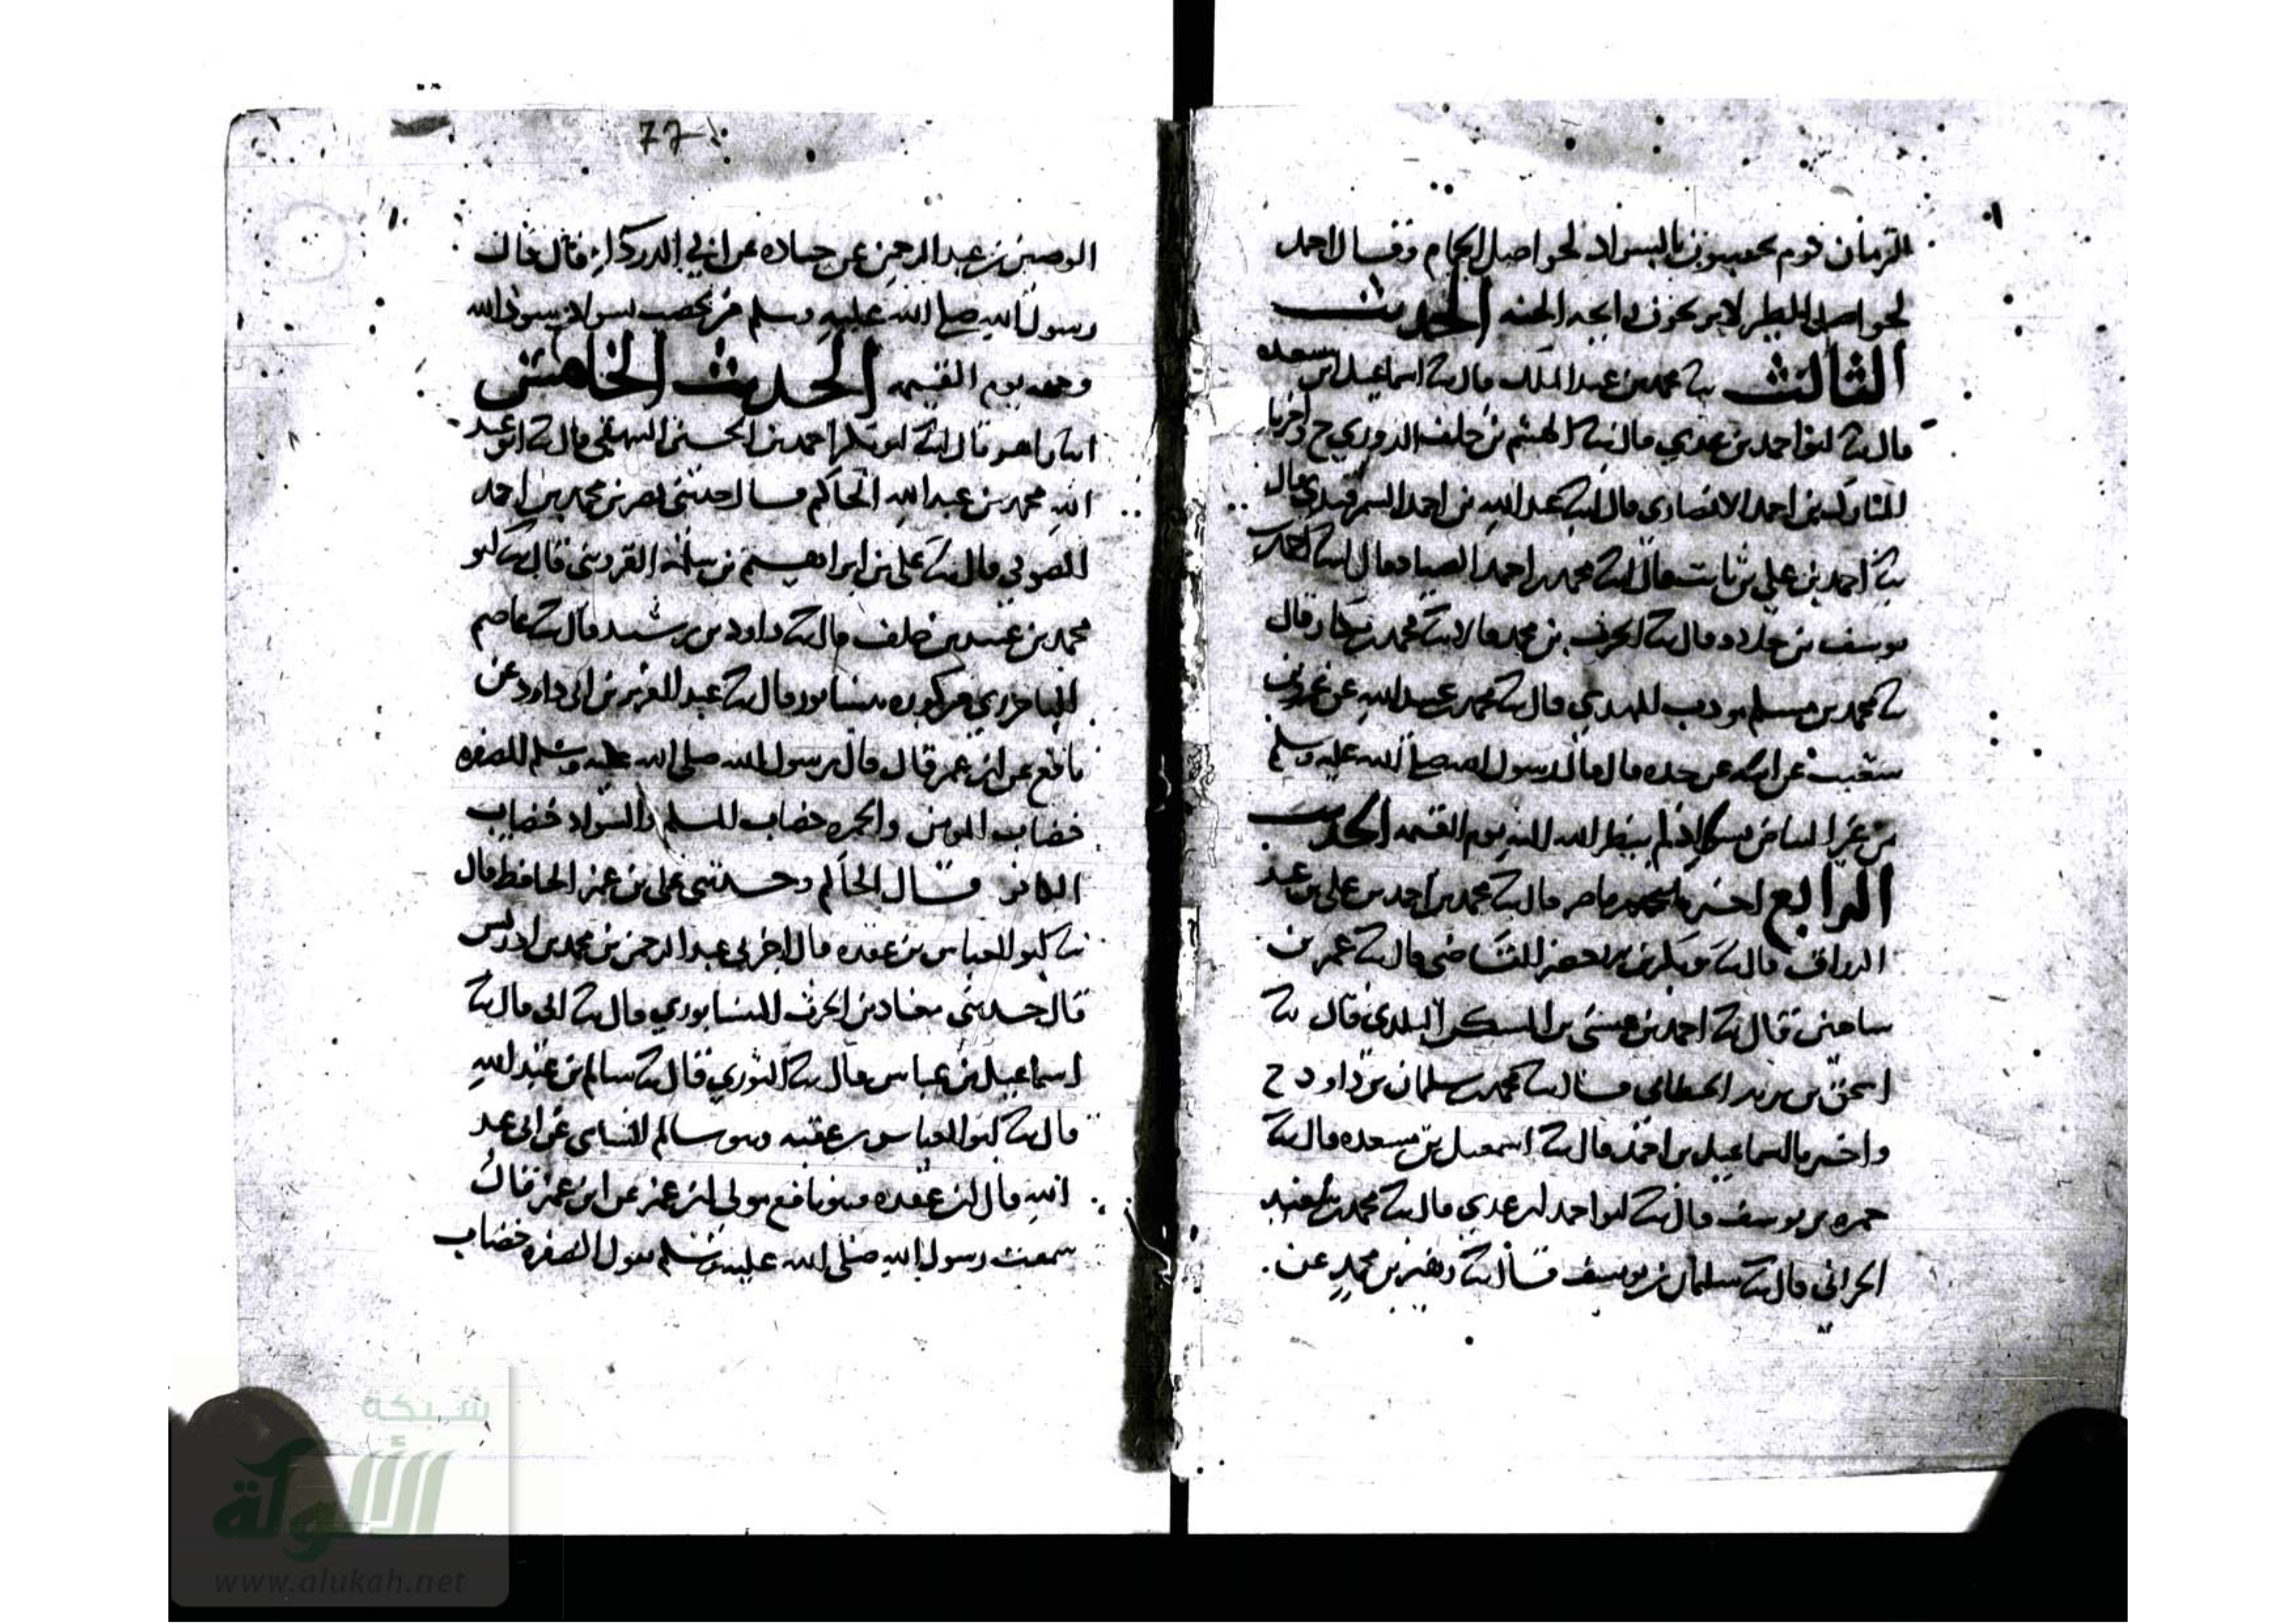 الزمان قوم يخضبون بالسواد كحواصل الحمام وقال احمد
كحواصل الطير لا يريحون رائحة الجنة الحديث
الثالث ثنا محمد بن عبد الملك قال ثنا اسماعيل ابن مسعدة
قال ثنا ابو احمد بن عدي قال ثنا الهيثم بن خلف الدوري ح واخبرنا
المبارك بن احمد الانصاري قال انا عبد الله بن احمد السمرقندي قال
ثنا احمد بن علي بن ثابت قال انا محمد بن احمد الصياد قال انا احمد بن
يوسف بن خلاد قال ثنا الحرث بن محمد قالا ثنا محمد بن بكار قال
ثنا محمد بن مسلم مودب المهدي قال ثنا محمد بن عبيد الله عن عمرو بن
شعيب عن ابيه عن جده قال قال رسول الله صلى الله عليه وسلم
من غير البياض سوادا لم ينظر الله اليه يوم القيمه الحديث
الرابع اخبرنا ناصر قال ثنا محمد بن احمد بن علي بن عبد
الرزاق قال ثنا بكر بن القاضي قال ثنا عمر بن
شاهين قال ثنا احمد بن عيسى بن السكين البلدي قال ثنا
اسحق بن يزيد الخطابي قال ثنا محمد بن سليمان بن داود ح
واخبرنا اسماعيل بن احمد قال ثنا اسمعيل بن مسعده قال ثنا
حمزه بن يوسف قال ثنا ابو احمد ابن عدي قال ثنا محمد بن سعيد
الحراني قال ثنا سليمان بن يوسف قال ثنا زهير بن محمد عن
77
الوضين بن عبد الرحمن عن جناده عن ابي الدرداء قال قال
رسول الله صلى الله عليه وسلم من يخضب بسواد سود الله
وجهه يوم القيمه الحديث الخامس
انا زاهر قال انا ابو بكر احمد بن الحسين البيهقي قال ثنا ابو عبد
الله محمد بن عبد الله الحاكم قال حدثني نصر بن محمد بن احمد
الصوفي قال ثنا علي بن ابراهيم بن سلمة القزويني قال ثنا ابو
محمد بن عبيد بن خلف قال ثنا داود بن رشيد قال ثنا عاصم
الباخرزي من كوره نيسابور قال ثنا عبد العزيز بن ابي داود عن
نافع عن ابن عمر قال قال رسول الله صلى الله عليه وسلم الصفره
خضاب المومن والحمره خضاب المسلم والسواد خضاب
الكافر قال الحاكم وحدثني علي بن عمر الحافظ قال
ثنا ابو العباس بن عقده قال اخبرني عبد الرحمن بن محمد بن ادريس
قال حدثني معاد بن الحرث النيسابوري قال ثنا ابي قال ثنا
اسماعيل بن عياش قال ثنا الثوري قال ثنا سالم بن عبد الله
قال ثنا ابو العباس بن عقبه وهو سالم عن ابي عبد
الله قال ابن عقده وهو نافع مولى ابن عمر عن ابن عمر قال
سمعت رسول الله صلى الله عليه وسلم يقول الصفره خضاب
شبكة
الألوكة
www.alukah.net